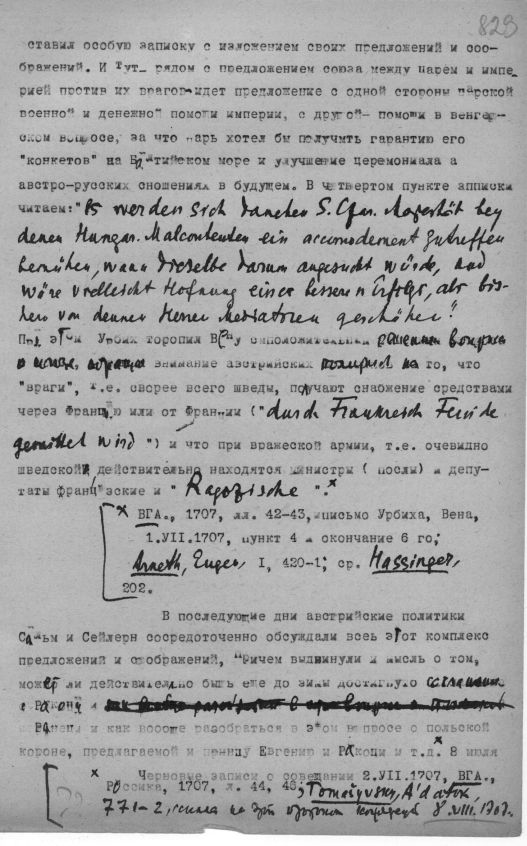 829
ставил особую записку с изложением своих предложений и соо-
бражений. И тут рядом с предложением союза между царем и импе-
рией против их врагов идет предложение с одной стороны царской
военной и денежной помощи империи, с другой - помощи в венгер-
ском вопросе, за что царь хотел бы получить гарантию его
"конкетов" на Балтийском море и улучшение церемониала а
австро-русских сношениях в будущем. В четвертом пункте запписки
читаем: "Es werden sich daneben S. Czar. Majestät bey
denen Hungar. Malcontenten ein accomodement zutreffen
bemühen, wann dieselbe darum angesucht würde, und
wäre vielleicht Hofnung einer bessern Erfolgs, als bis-
hero von dennen Herrn Mediatorn geschehen".
При этом Урбих торопил Вену с положительным решением вопроса
о союзе, обращая внимание австрийских политиков на то, что
"враги", т.е. скорее всего шведы, получают снабжение средствами
через Францию или от Франции ("durch Frankreich Feinde
gemittel wird") и что при вражеской армии, т.е. очевидно
шведской, действительно находятся министры ( послы) и депу-
таты французские и "Ragozische".x
x ВГА., 1707, лл. 42-43, письмо Урбиха, Вена,
1.УII.1707, пункт 4 и окончание 6 го;
Arneth, Eugen, I, 420-1; ср. Hassinger,
202.
В последующие дни австрийские политики
Сальм и Сейлерн сосредоточенно обсуждали всеь этот комплекс
предложений и соображений, причем выдвинули и мысль о том,
может ли действительно быть еще до зимы достигнуто соглашение
с Ракоци и
Ракоци и как вообще разобраться в этом вопросе о польской
короне, предлагаемой и принцу Евгению и Ракоци и т.д.x 8 июля
x Черновые записи о совещании 2.УII.1707, ВГА.,
Россика, 1707, л. 44, 48; Tomašivskyj, Adatok
771-2, ссылка на 8.VIII.1707.